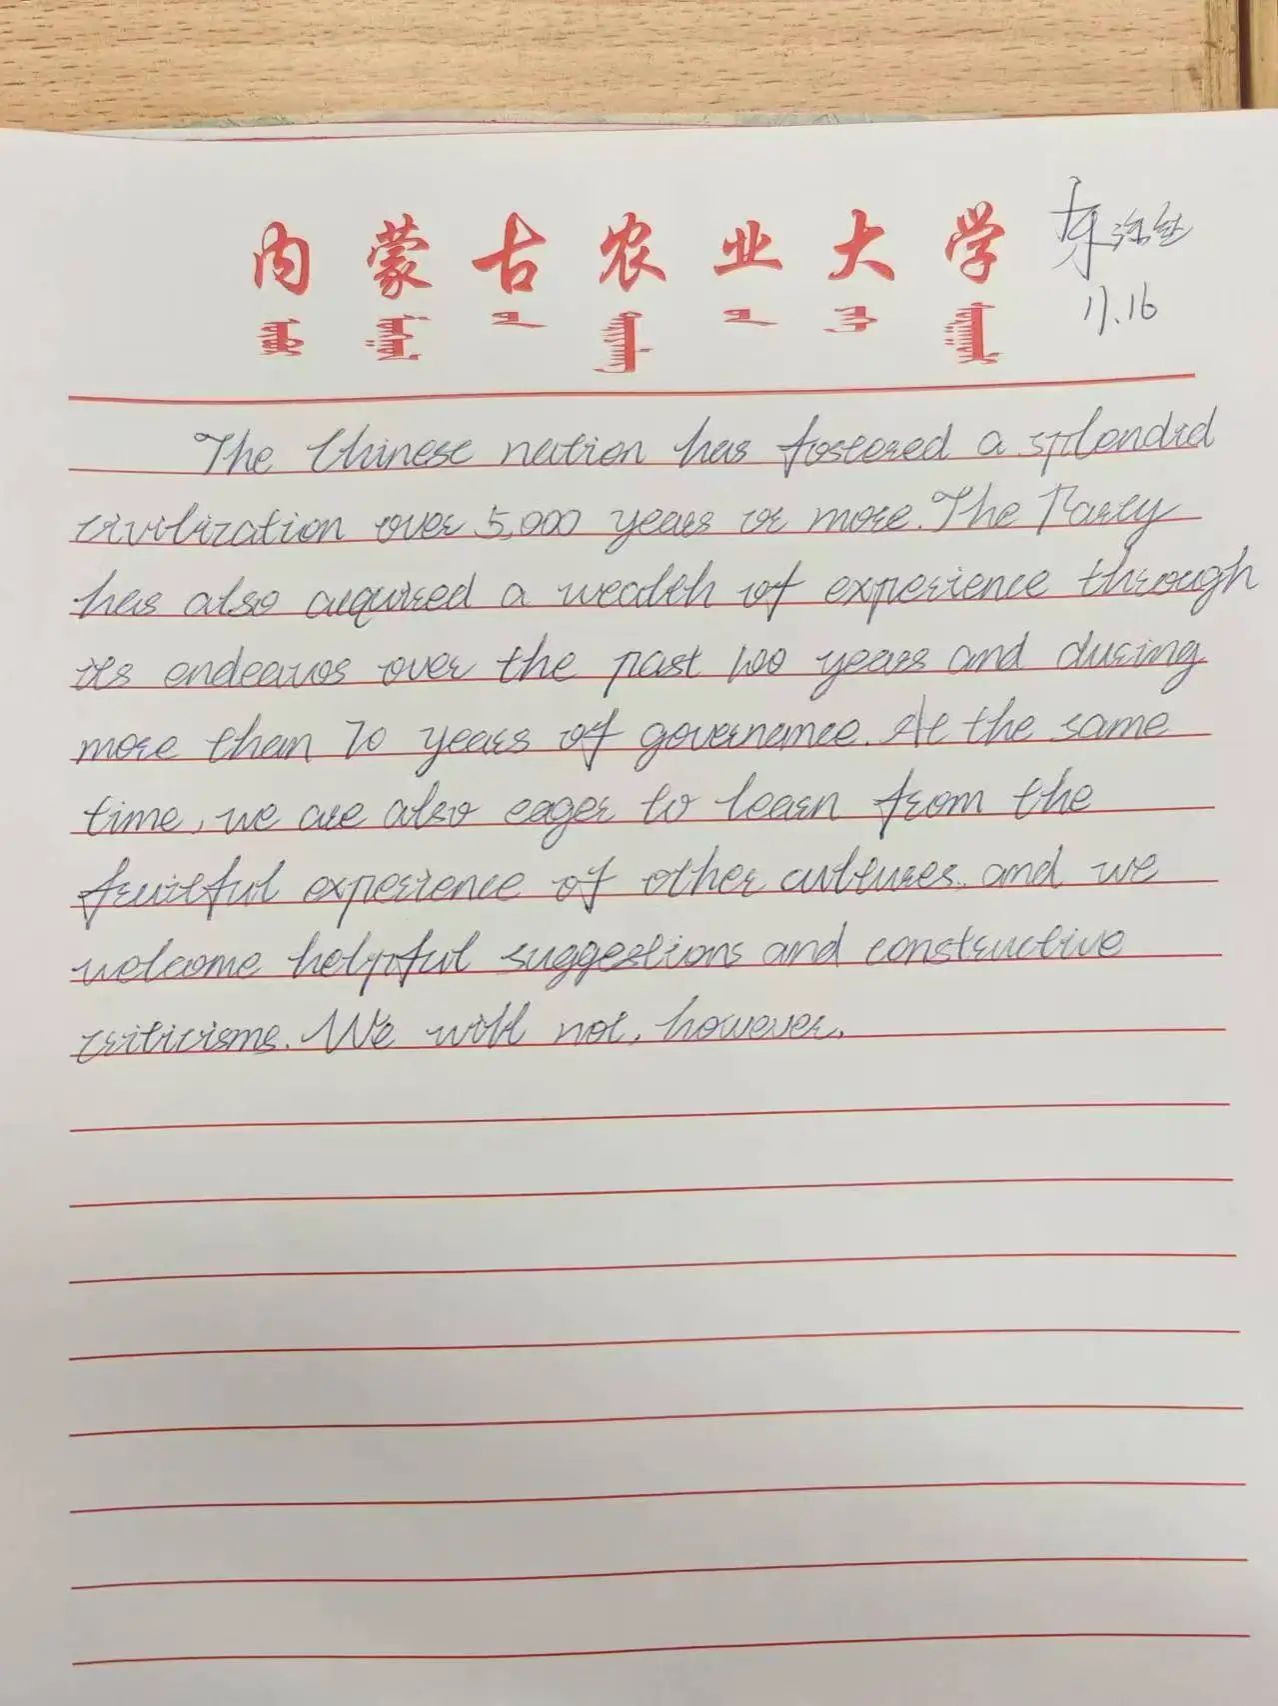 内蒙古农业大学
11.16
The Chinese nation has fostered a splendid
civilization over 5,000 years or more. The Party
has also acquired a wealth of experience through
its endeavos over the past 100 years and during
more than 70 years of governance. At the same
time, we are also eager to learn from the
fruitful experience of other cultures, and we
welcome helpful suggestions and constructive
criticisms. We will not, however,